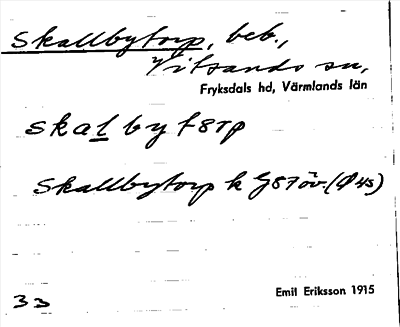 Skallbytorp, beb.,
Vitsands sn,
Fryksdals hd, Värmlands län
skalbytorp
Skallbytorp k G87öv. (Ø4s)
33
Emil Eriksson 1915